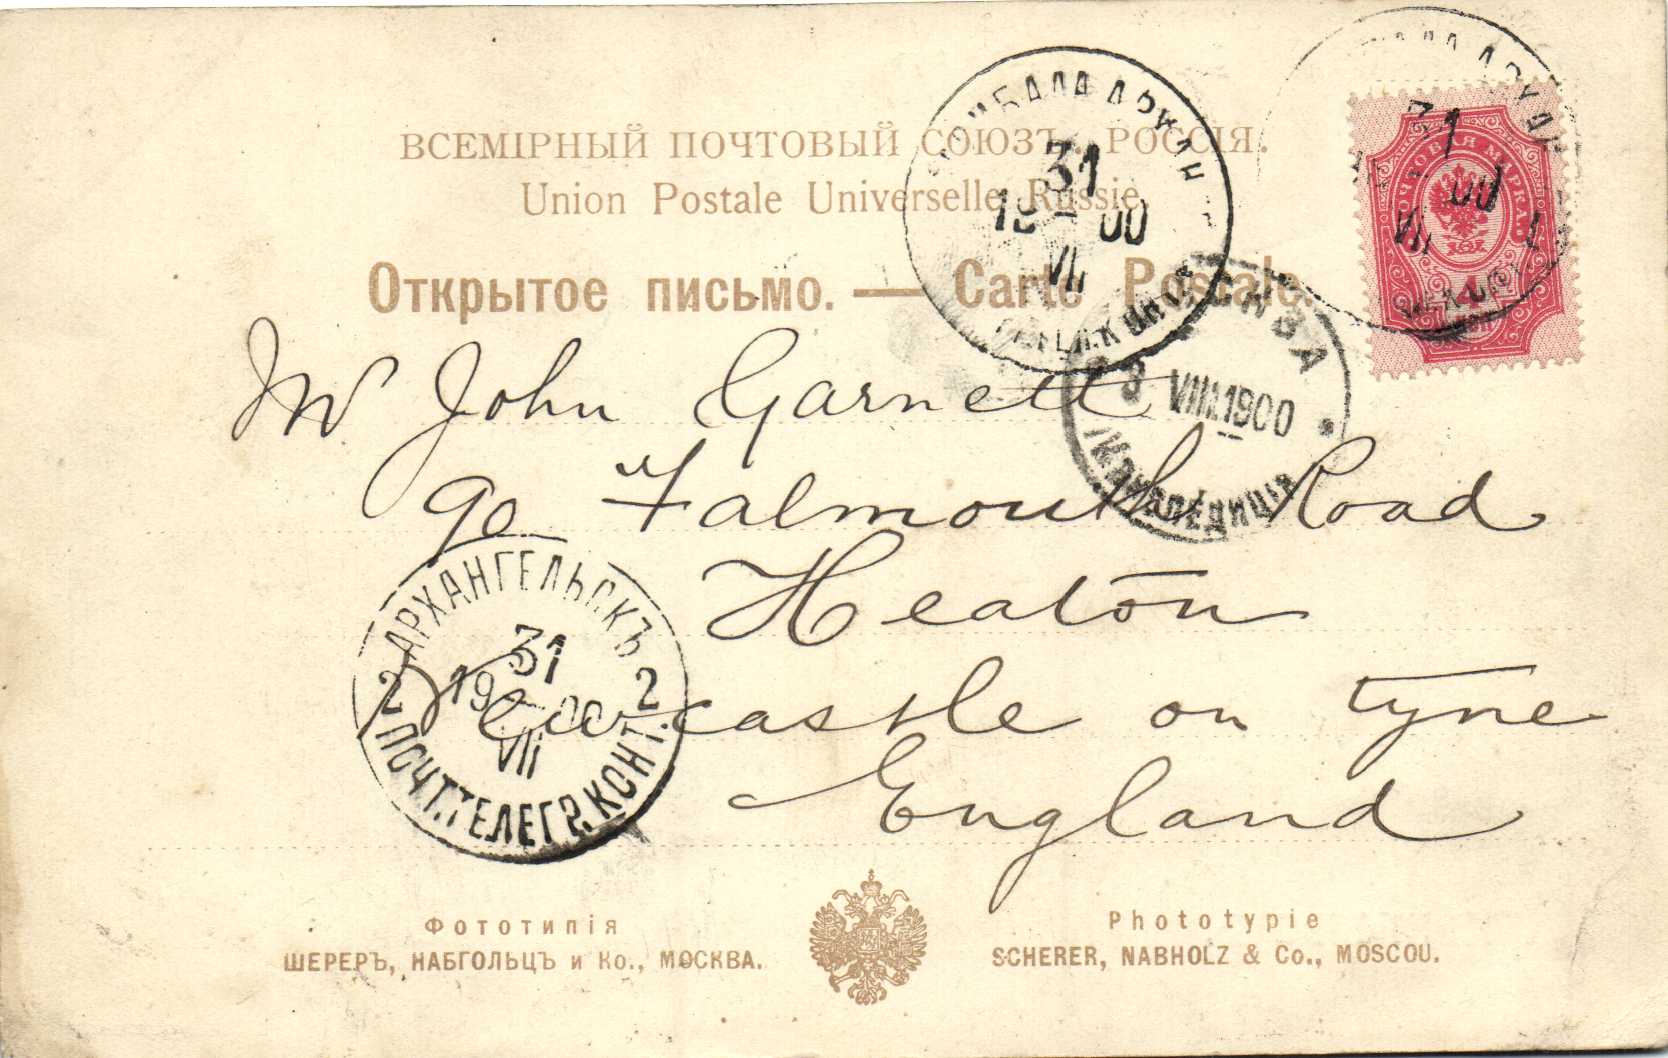 ВСЕМІРНЫЙ ПОЧТОВЫЙ СОЮЗЪ. РОССІЯ.
Union Postale Universelle. Russie.
Открытое письмо. — Carte Postale.
31
19 00
VII
31
00
VII
ПОЧТОВАЯ МАРКА.
4
3 VIII.1900
Mr John Garnett
90 Falmouth Road
Heaton
Newcastle on Tyne
England
АРХАНГЕЛЬСКЪ
31
2 19 00 2
VII
ПОЧТ.ТЕЛЕГР.КОНТ.
Фототипія
ШЕРЕРЪ, НАБГОЛЬЦЪ и Ко., МОСКВА.
Phototypie
SCHERER, NABHOLZ & Co., MOSCOU.